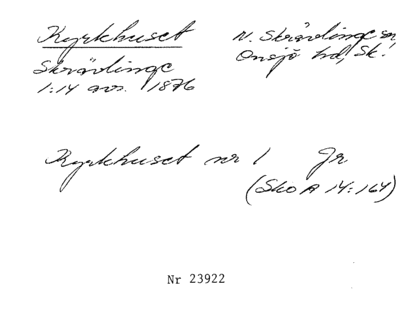 Kyrkhuset
N. Skrävlinge sn
Skrävlinge
Onsjö hd, Sk.
1:14 avs. 1876
Kyrkhuset nr 1 Jr
(Sko A 14:164)
Nr 23922